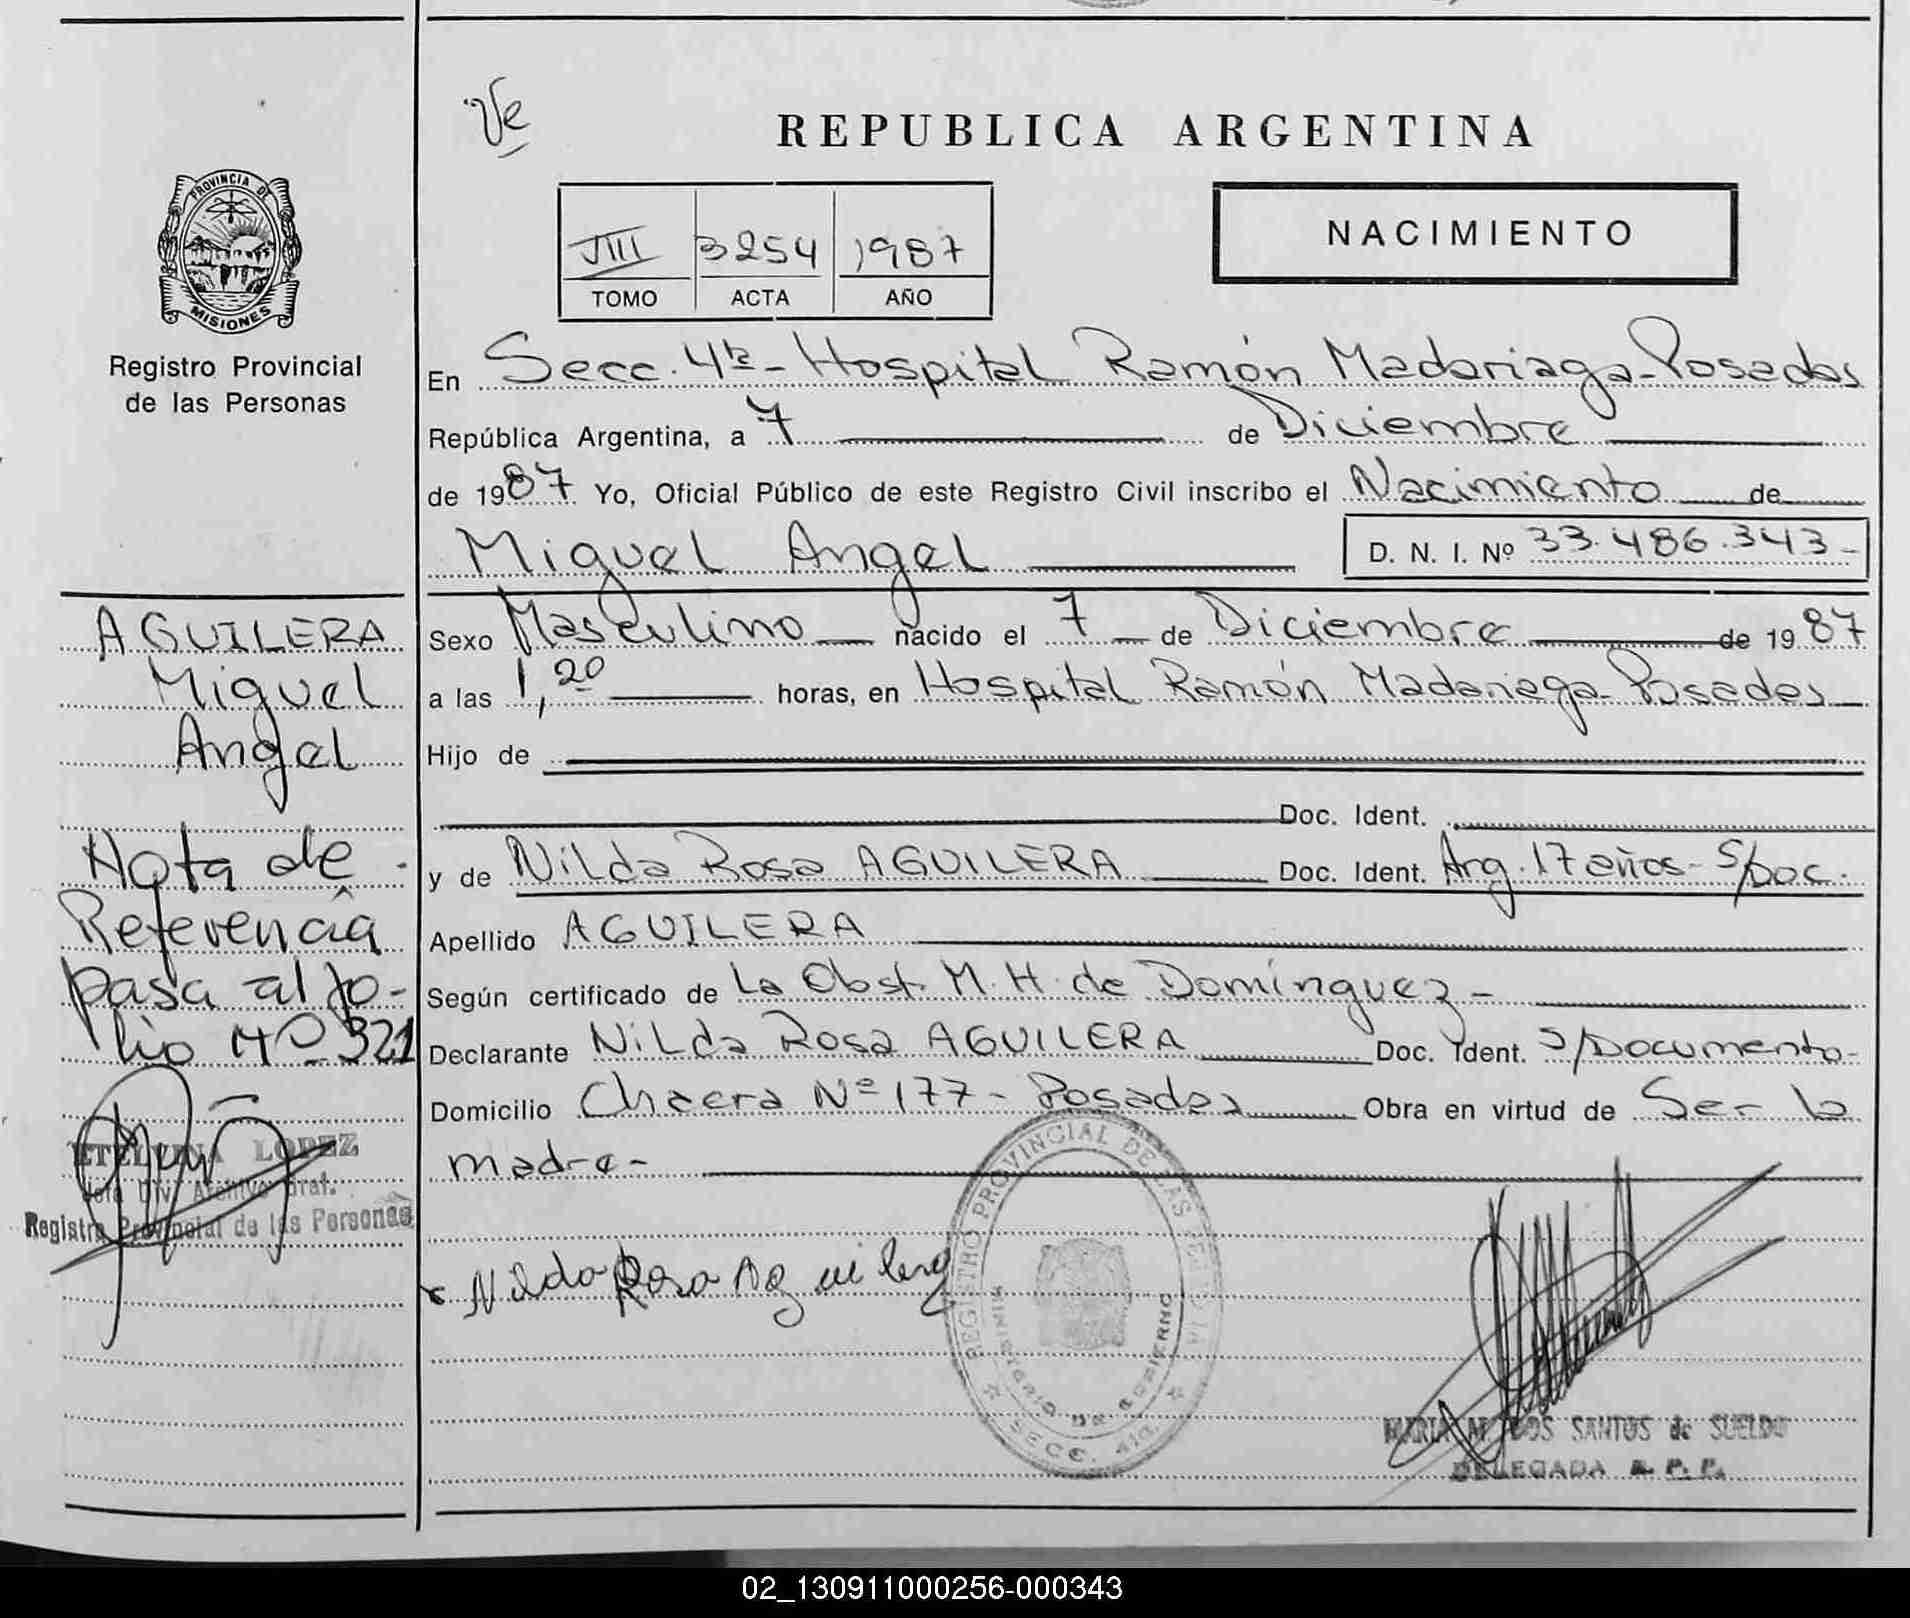 Ve
REPUBLICA ARGENTINA
VIII 3254 1987
TOMO ACTA AÑO
NACIMIENTO
PROVINCIA DE
MISIONES
Registro Provincial
de las Personas
En Secc. 4ta - Hospital Ramón Madariaga - Posadas
República Argentina, a 7 de Diciembre
de 1987 Yo, Oficial Público de este Registro Civil inscribo el Nacimiento de
Miguel Angel D. N. I. Nº 33.486.343-
AGUILERA
Miguel
Angel
Nota de
Referencia
pasa al fo-
lio Nº 321
LOPEZ
Jefa Div. Archivo Gral.
Registro Provincial de las Personas
Sexo Masculino nacido el 7 de Diciembre de 1987
a las 1,20 horas, en Hospital Ramón Madariaga - Posadas
Hijo de
Doc. Ident.
y de Nilda Rosa AGUILERA Doc. Ident. Arg. 17 años - S/Doc.
Apellido AGUILERA
Según certificado de La Obst. M. H. de Domínguez -
Declarante Nilda Rosa AGUILERA Doc. Ident. S/Documento-
Domicilio Chacra Nº 177 - Posadas Obra en virtud de Ser la
madre -
REGISTRO PROVINCIAL DE LAS PERSONAS
MINISTERIO DE GOBIERNO
SECC. 4ta.
x Nilda Rosa Aguilera
MARIA M. DOS SANTOS de SUELDO
DELEGADA R. P. P.
02_130911000256-000343